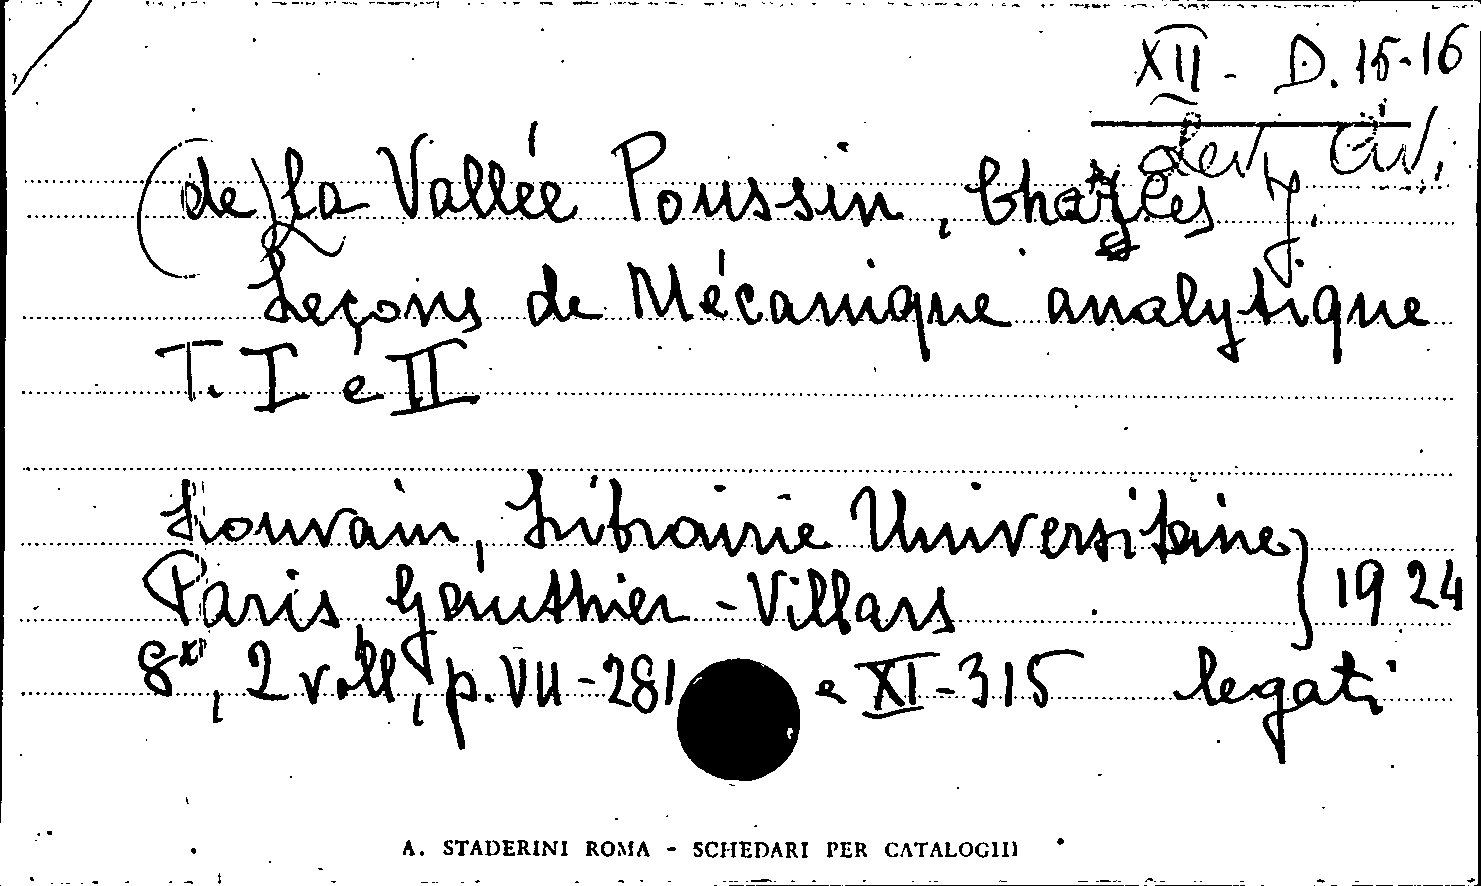 XII - D. 15-16
Lev. Civ.
(de) La Vallée Poussin, Charles J.
Leçons de Mécanique analytique
T. I e II
Louvain, Librairie Universitaire
Paris, Gauthier-Villars } 1924
8°, 2 voll, p. VII-281 e XI-315 legati
A. STADERINI ROMA - SCHEDARI PER CATALOGHI